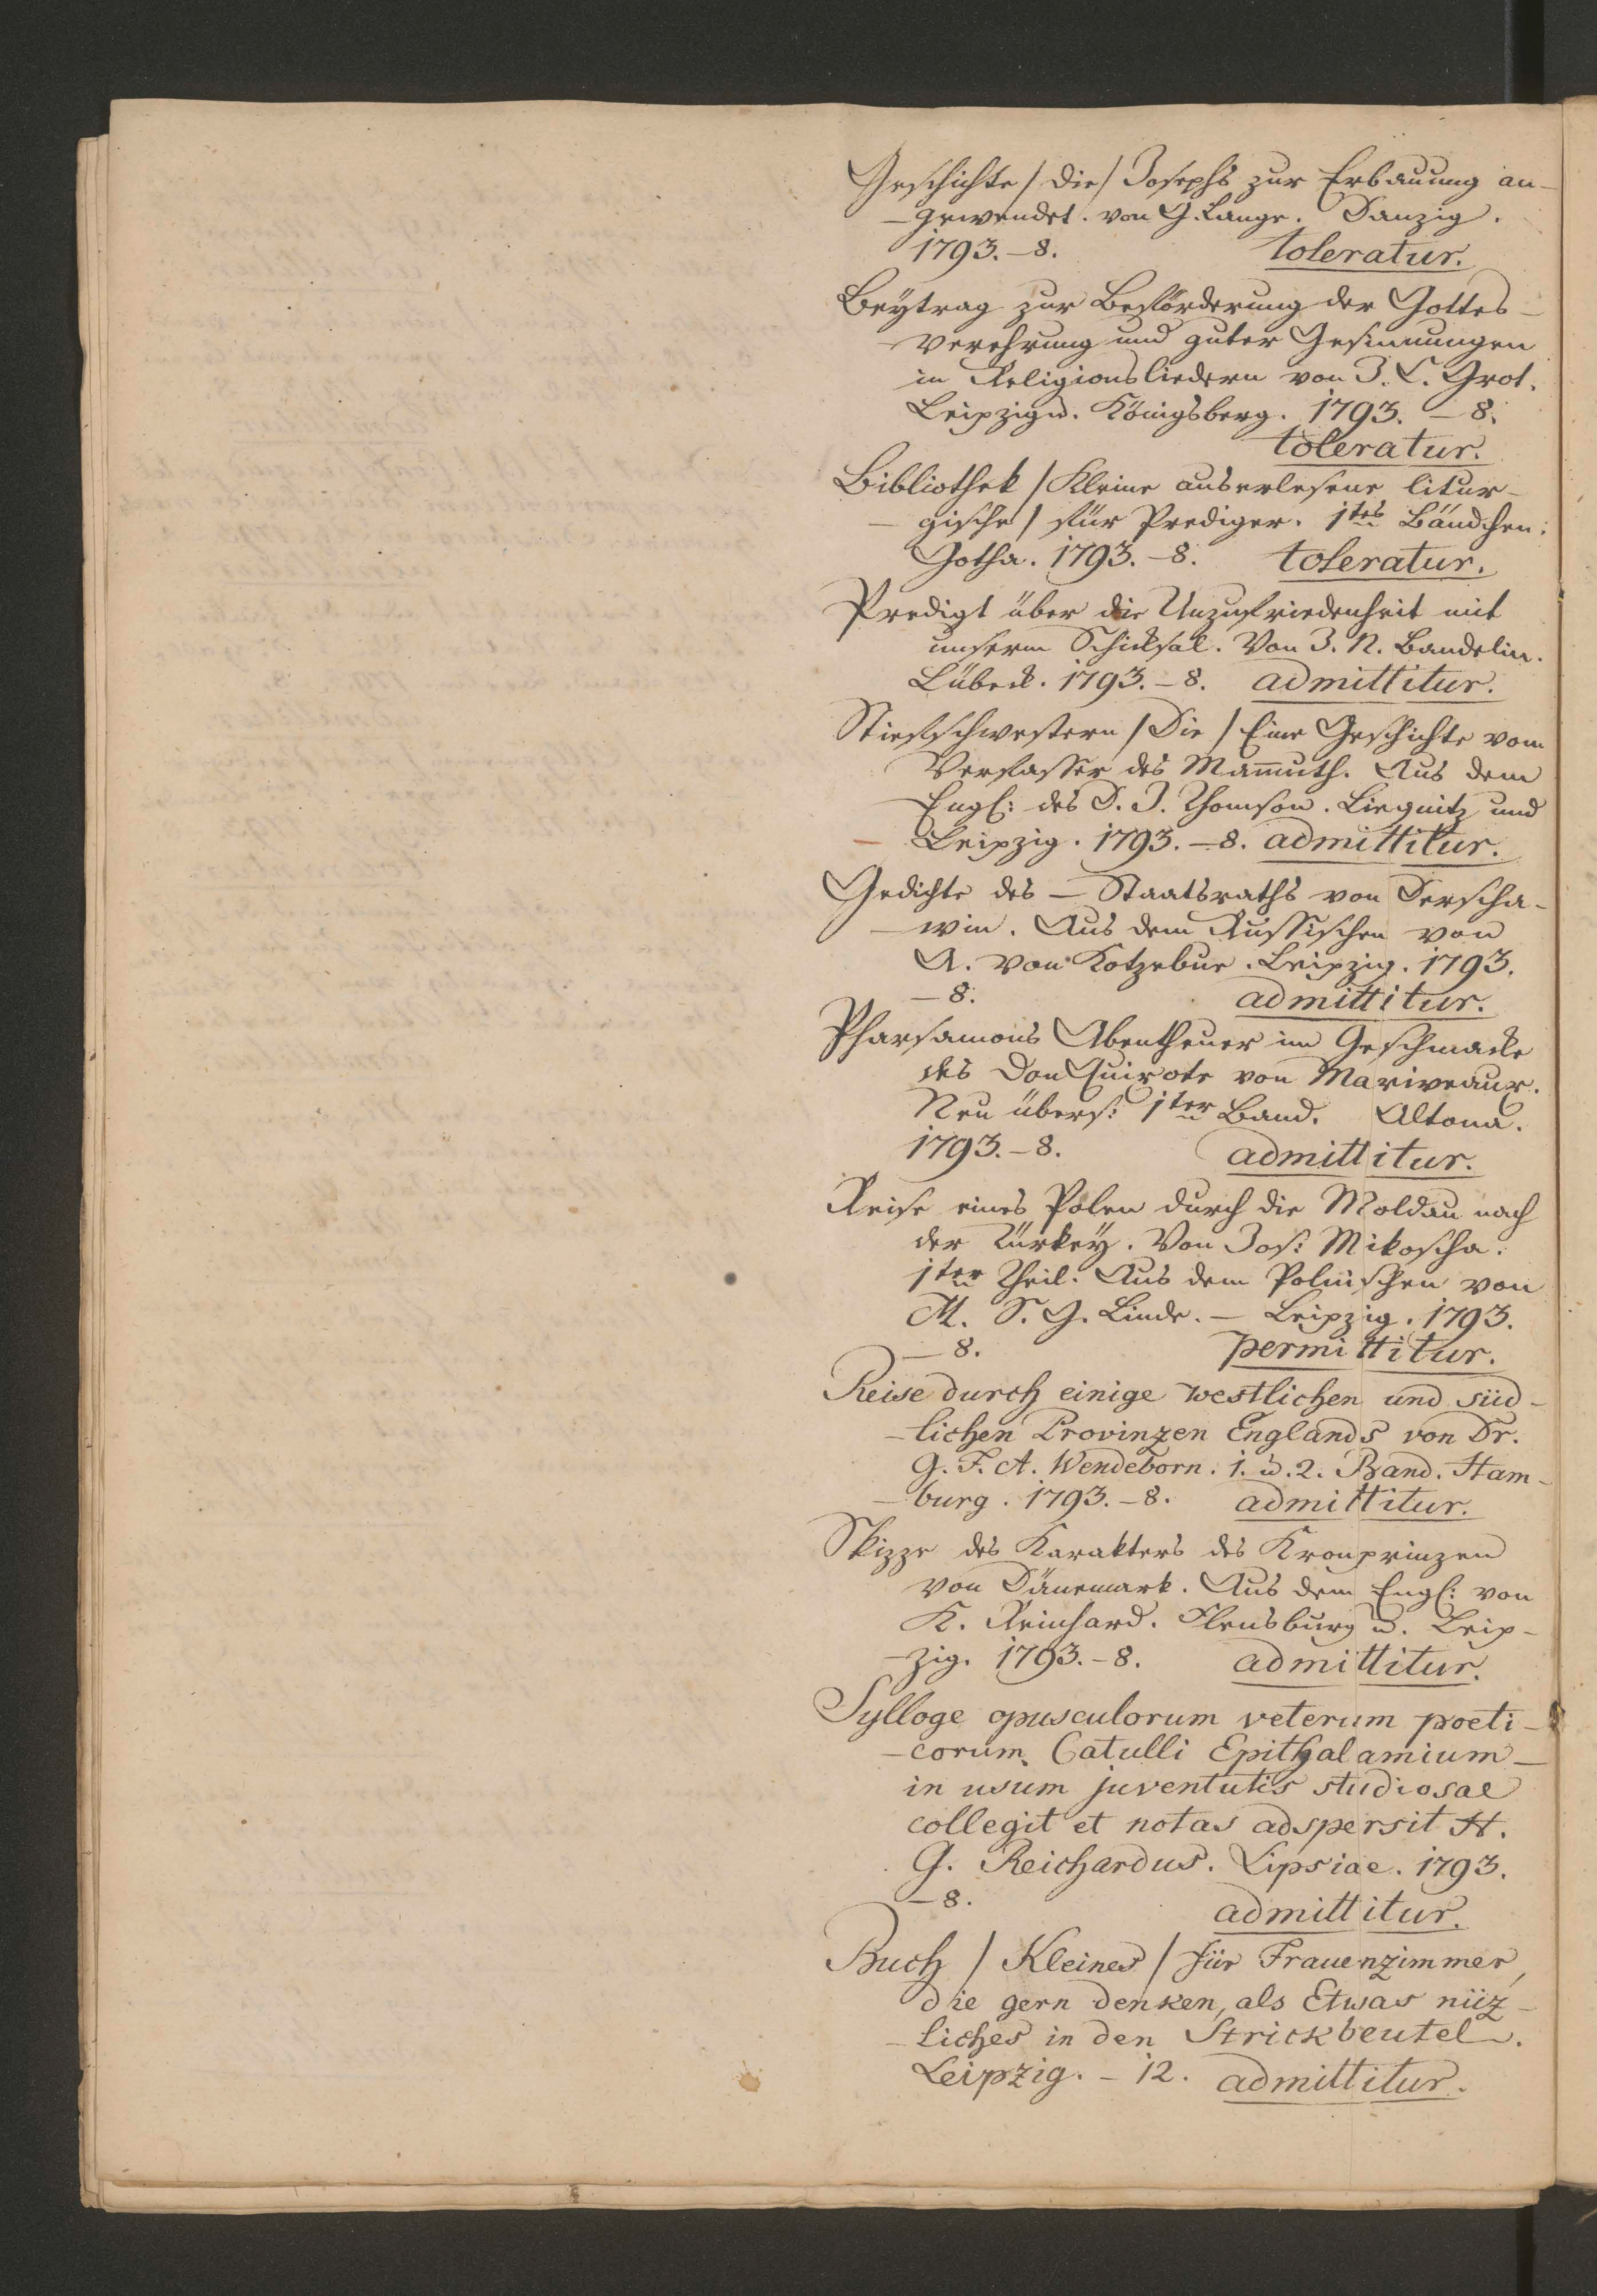 Geschichte / die / Josephs zur Erbauung an-
-gewendet. von G. Lange. Danzig.
1793.-8. toleratur.
Beÿtrag zur Beförderung der Gottes-
verehrung und guter Gesinnungen
in Religionsliedern von J. C. Grot.
Leipzig u. Königsberg. 1793. -8.
toleratur.
Bibliothek / Kleine auserlesene litur-
-gische / für Prediger. 1tes Bändchen.
Gotha. 1793.-8. toleratur.
Predigt über die Unzufriedenheit mit
unserm Schicksal. Von J. N. Bandelin.
Lübeck. 1793.-8. admittitur.
Stiefschwestern / Die / Eine Geschichte vom
Verfasser des Mam̅uth. Aus dem
Engl: des D. J. Thomson. Liegnitz und
Leipzig. 1793.-8. admittitur.
Gedichte des - Staatsraths von Derscha-
-win. Aus dem Russischen von
A. von Kotzebue. Leipzig. 1793.
-8. admittitur.
Pharsamons Abentheuer im Geschmacke
des Don Quixote von Mariveaux.
Neu übers: 1ter Band. Altona.
1793.-8. admittitur.
Reise eines Polen durch die Moldau nach
der Türkeÿ. Von Jos: Mikoscha.
1ter Theil. Aus dem Polnischen von
M. S. G. Linde. - Leipzig. 1793.
-8. permittitur.
Reise durch einige westlichen und süd-
-lichen Provinzen Englands von Dr.
G. F. A. Wendeborn. 1. u. 2. Band. Ham-
-burg. 1793.-8. admittitur.
Skizze des Karakters des Kronprinzen
von Dänemark. Aus dem Engl: von
K. Reinhard. Flensburg u. Leip-
-zig. 1793.-8. admittitur.
Sylloge opusculorum veterum poeti-
-corum. Catulli Epithalamium -
in usum juventutis studiosae
collegit et notas adspersit H.
G. Reichardus. Lipsiae. 1793.
-8. admittitur.
Buch / Kleines / für Frauenzimmer,
die gern denken, als Etwas nüz-
-liches in den Strickbeutel.
Leipzig. - 12. admittitur.